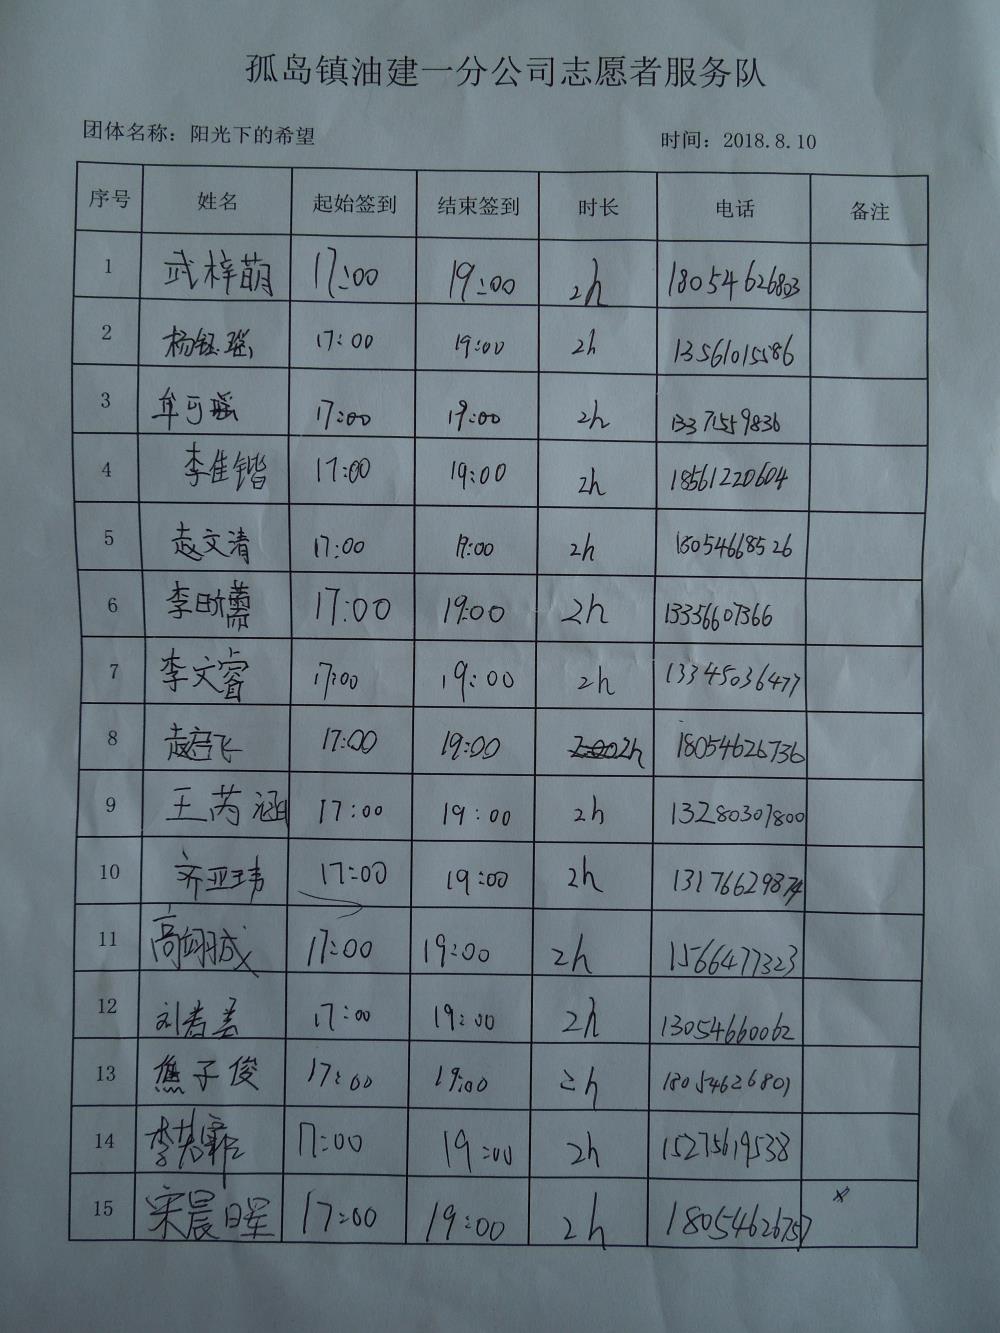 孤岛镇油建一分公司志愿者服务队
团体名称：阳光下的希望 时间：2018.8.10
序号 姓名 起始签到 结束签到 时长 电话 备注
1 武梓萌 17:00 19:00 2h 18054626803
2 杨钰瑶 17:00 19:00 2h 13561015586
3 牟可瑶 17:00 19:00 2h 13371559836
4 李佳锴 17:00 19:00 2h 18561220604
5 赵文清 17:00 19:00 2h 18054668526
6 李 17:00 19:00 2h 13356607366
7 李文睿 17:00 19:00 2h 13345036477
8 赵启飞 17:00 19:00 2h 18054626736
9 王芮涵 17:00 19:00 2h 13280307800
10 齐亚玮 17:00 19:00 2h 13176629874
11 高翊成 17:00 19:00 2h 1566477323
12 刘 17:00 19:00 2h 13054660062
13 子俊 17:00 19:00 2h 18054626801
14 李 17:00 19:00 2h 15275619538
15 宋晨 17:00 19:00 2h 18054626757